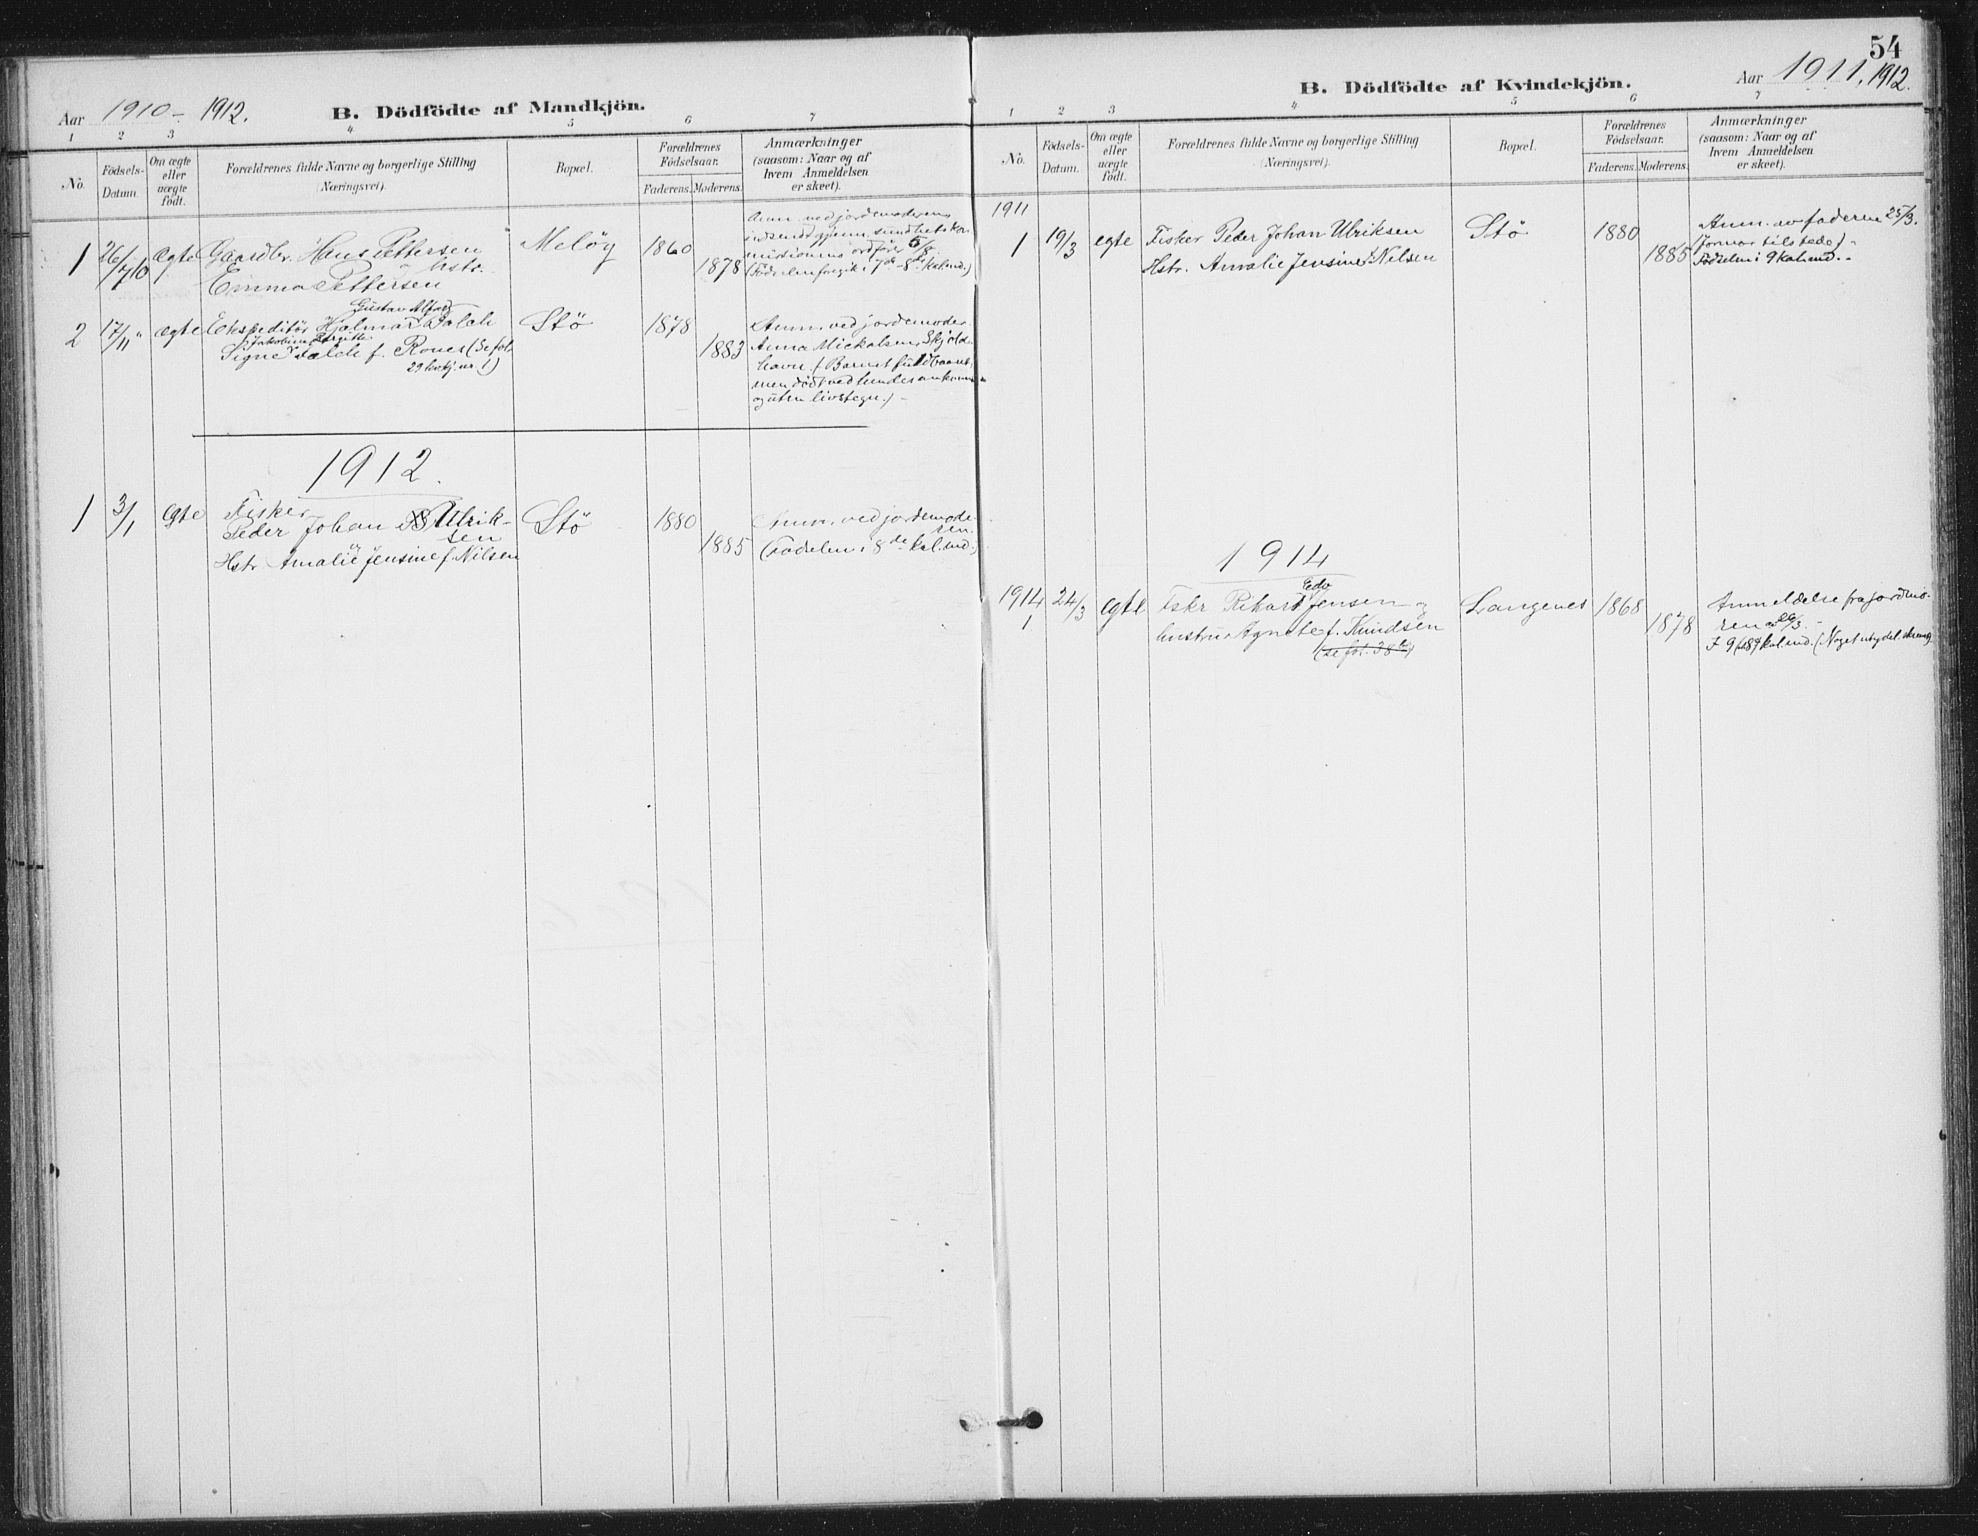 Aar 1910 - 1912.
B. Dödfödte af Mandkjön.
1 2 3 4 5 6 7
No.
Födsels-Datum.
Om ægte eller uægte födt.
Forældrenes fulde Navne og borgerlige Stilling (Næringsvei).
Bopæl.
Forældrenes Födselsaar.
Faderens. Moderens.
Anmærkninger (saasom: Naar og af hvem Anmeldelsen er skeet).
1 26/7 10 ægte Gaardbr. Hans Pettersen
hstr.
Emma Pettersen
Melöy 1860
1878
Anm. ved jordemoderens
indsendt gjenn. sundhetskom
missionens ordförer 5/8
(Födselen foregik i 7de - 8de kal.md.)
2 17/11 " ægte Ekspeditör Hjalmar Falch
Gustav Alfar
Jakobine Birgitte
Signe Falch f. Rones (Se fol.
29 kvkj. nr. 1)
Stö 1878
1883
Anm. ved jordemoder
Anna Mickalsen, Skjold-
havn. (Barnet fuldbaaret,
men dödt ved hendes ankomst
og uten livstegn.) -
1912.
1 3/1 egte Fisker
Peder Johan Ulrik-
sen
Hstr Amalie Jensine f. Nilsen
Stö 1880
1885
Anm. ved jordemode-
ren.
(Födselen i 8de kal.md.)
54
B. Dödfödte af Kvindekjön.
Aar 1911, 1912.
1 2 3 4 5 6 7
No.
Födsels-Datum.
Om ægte eller uægte födt.
Forældrenes fulde Navne og borgerlige Stilling (Næringsvei).
Bopæl.
Forældrenes Födselsaar.
Faderens. Moderens.
Anmærkninger (saasom: Naar og af hvem Anmeldelsen er skeet).
1911
1 19/3 egte Fisker Peder Johan Ulriksen
Hstr. Amalie Jensine f. Nilsen
Stö 1880
1885
Anm. av faderen 25/3.
Födselen i 9 kal.md. -
1914
1914 24/3 egte Fiskr Rikart Edv Jensen og
1
hustru Agnete f. Knudsen
(se fol. 38 )
Langenes 1868
1878
Anmeldelse fra jordmo-
ren
I 9 kal.md. (Noget utydel. skrevet)